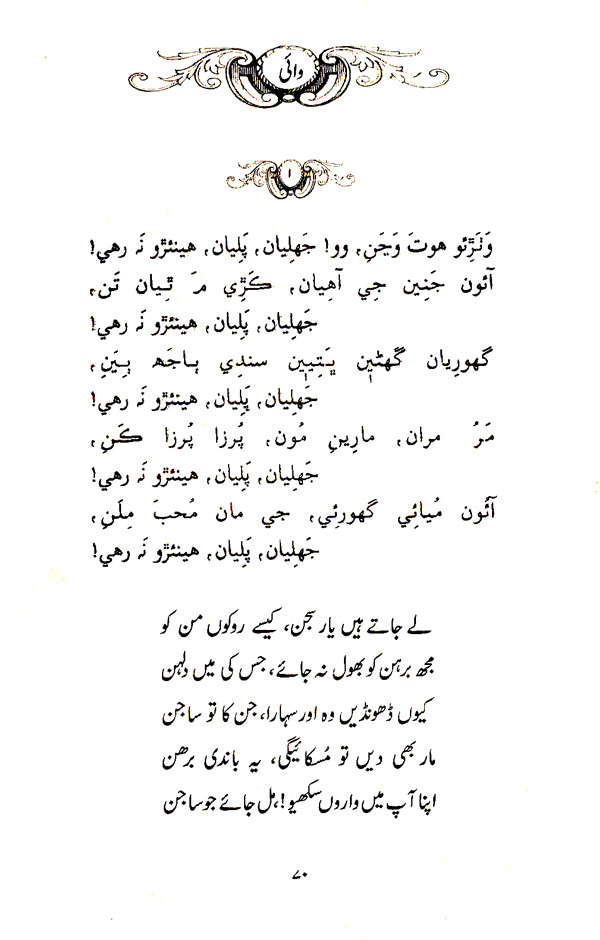 وائی
۱
وَٺَڙِئو هوتَ وَڃَنِ، وو! جَهليان، پَليان، هينئڙو نَہ رهي!
آئون جَنِين جي آهيان، ڪَڙِي مَ ٿِيان تَن،
جَهليان، پَليان، هينئڙو نَہ رهي!
گهورِيان گهڻين سندِي ٻاجَهہ ٻِيَنِ،
جَهليان، پَليان، هينئڙو نَہ رهي!
مَرُ مران، مارينِ مُون، پُرزا پُرزا ڪَنِ،
جَهليان، پَليان، هينئڙو نَہ رهي!
آئون مُيائِي گهورئِي، جي مان مُحبَ مِلَنِ،
جَهليان، پَليان، هينئڙو نَہ رهي!
لے جاتے ہیں یار سجن، کیسے روکوں من کو
مجھ برہن کو بھول نہ جائے، جس کی میں دلہن
کیوں ڈھونڈیں وہ اور سہارا، جن کا تو ساجن
مار بھی دیں تو مُسکائیگی، یہ باندی برھن
اپنا آپ میں واروں سکھیو!، مل جائے جو ساجن
۷۰